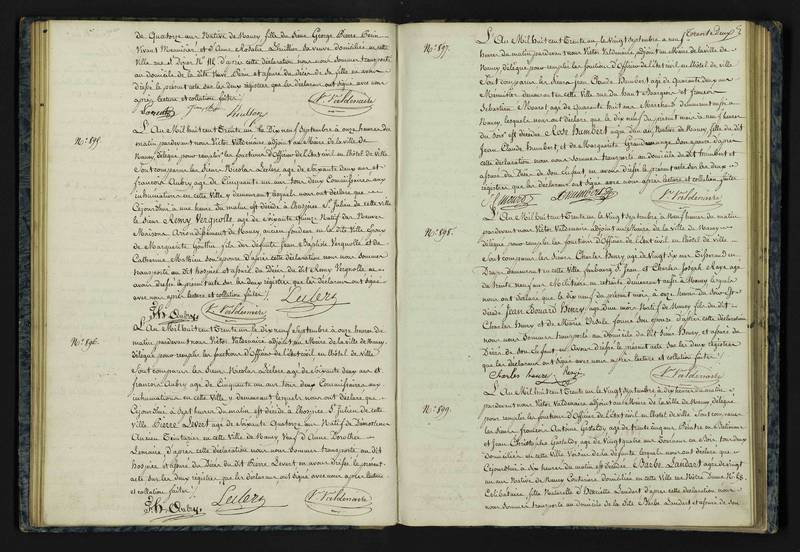 de Quatorze aus Native de Nancy fille du Sieur George Pierre
Vivant Menuisier et d'Anne Rosalie sa veuve domiciliée en cette
Ville rue St Dizier No d'après cette déclaration nous nous sommes transporté
au domicile de la dite et assuré du Décès de sa fille en avons
dressé le présent acte sur les deux registres que les déclarans ont signé avec nous
après lecture et collation faites
Vr Valdenaire
No 895.
L'An Mil huit cent Trente un le Dix neuf Septembre à onze heures du
matin pardevant nous Victor Valdenaire adjoint au Maire de la ville de
Nancy, délégué pour remplir les fonctions d'Officier de l'état civil en l'hôtel de Ville
Sont comparus les Sieurs Nicolas Leclerc age de soixante deux ans et
francois Aubry age de Cinquante un aus tous deux Commissaires aux
inhumations en cette Ville y demeurant lesquels nous ont déclaré que
Cejourdhui à une heure du matin est décédé à l'hospice St Julien de cette ville
le Sieur Remy Vergnolle age de Soixante Quinze Natif de Neuves
Maisons Arrondissement de Nancy, ancien fondeur en la dite Ville Epoux
de Marguerite Gouthier fils des défunts Jean Baptiste Vergnolle et de
Catherine Mathieu son épouse, d'après cette déclaration nous nous sommes
transporté au dit hospice et assuré du Décès du dit Remy Vergnolle en
avons dressé le présent acte sur les deux registres que les déclarans ont signé
avec nous après lecture et collation faites
Leclerc
fs Aubry
Vr Valdenaire
No 896.
L'An Mil huit cent Trente un le dix neuf Septembre à onze heures du
matin pardevant nous Victor Valdenaire adjoint au Maire de la ville de Nancy
délégué pour remplir les fonctions d'Officier de l'état civil en l'hôtel de Ville
Sont comparus les Sieurs Nicolas Leclerc age de Soixante deux ans et
francois Aubry age de Cinquante un aus tous deux Commissaires aux
inhumations en cette Ville y demeurant lesquels nous ont déclaré que
Cejourdhui à Sept heures du matin est décédé à l'hospice St Julien de cette
ville Pierre Levert age de Soixante Quatorze aus Natif de
Ancien Teinturier en cette Ville de Nancy Veuf d'Anne Dorothée
Lemaire, d'après cette déclaration nous nous sommes transporté au dit
hospice et assuré du Décès du dit Pierre Levert en avons dressé le présent
acte sur les deux registres que les déclarans ont signé avec nous après lecture
et collation faites
fs Aubry
Leclerc
Vr Valdenaire
Trente Deux
No 897.
L'An Mil huit cent Trente un le Vingt Septembre à neuf
heures du matin pardevant nous Victor Valdenaire, adjoint au Maire de la ville de
Nancy délégué pour remplir les fonctions d'Officier de l'état civil en l'hôtel de ville
Sont comparus les Sieurs Jean Claude Humbert age de Quarante deux aus
Menuisier demeurant en cette Ville rue du haut Bourgeois et francois
Sébastien age de Quarante huit aus Marchand demeurant aussi à
Nancy, lesquels nous ont déclaré que le dix neuf du présent mois à neuf heures
du soir est décédée Rose Humbert agée d'un an Native de Nancy, fille du dit
Jean Claude Humbert, et de Marguerite son épouse d'après
cette déclaration nous nous sommes transporté au domicile du dit Humbert et
assuré du Décès de son Enfant, en avons dressé le présent acte sur les deux
registres que les déclarans ont signé avec nous après lecture et collation faites
Humbert
Vr Valdenaire
No 898.
L'An Mil huit cent Trente un le Vingt Septembre à Neuf heures du matin
pardevant nous Victor Valdenaire adjoint au Maire de la ville de Nancy
délégué pour remplir les fonctions d'Officier de l'état civil en l'hôtel de Ville
Sont comparus les Sieurs Charles Henry age de Vingt six aus Tisserand en
Draps demeurant en cette Ville faubourg St Jean et Charles Joseph age
de Trente neuf aus Militaire en retraite demeurant aussi à Nancy lesquels
nous ont déclaré que le dix neuf du présent mois à onze heures du soir est
décédé Jean Edouard Henry, age d'un mois Natif de Nancy fils du dit
Charles Henry et de Marie son épouse d'après cette déclaration
nous nous sommes transporté au domicile du dit Sieur Henry et assuré du
Décès de son Enfant en avons dressé le présent acte sur les deux registres
que les déclarans ont signé avec nous après lecture et collation faites
Charles henry
Vr Valdenaire
No 899.
L'An Mil huit cent Trente un le Vingt Septembre à dix heures du matin
pardevant nous Victor Valdenaire adjoint au Maire de la Ville de Nancy, délégué
pour remplir les fonctions d'Officier de l'état civil en l'hôtel de Ville Sont comparus
les Sieurs francois Antoine age de trente cinq aus Peintre en Batimens
et Jean Christophe age de Vingt quatre aus tous deux
domiciliés en cette Ville de la défunte lesquels nous ont déclaré que
Cejourdhui à dix heures du matin est décédée Barbe Landart agée de vingt
un aus Native de Nancy Couturière domiciliée en cette Ville rue Notre Dame No 68
Célibataire, fille Naturelle d'Henriette Landart d'après cette déclaration nous
nous sommes transporté au domicile de la dite Barbe Landart et assuré de son